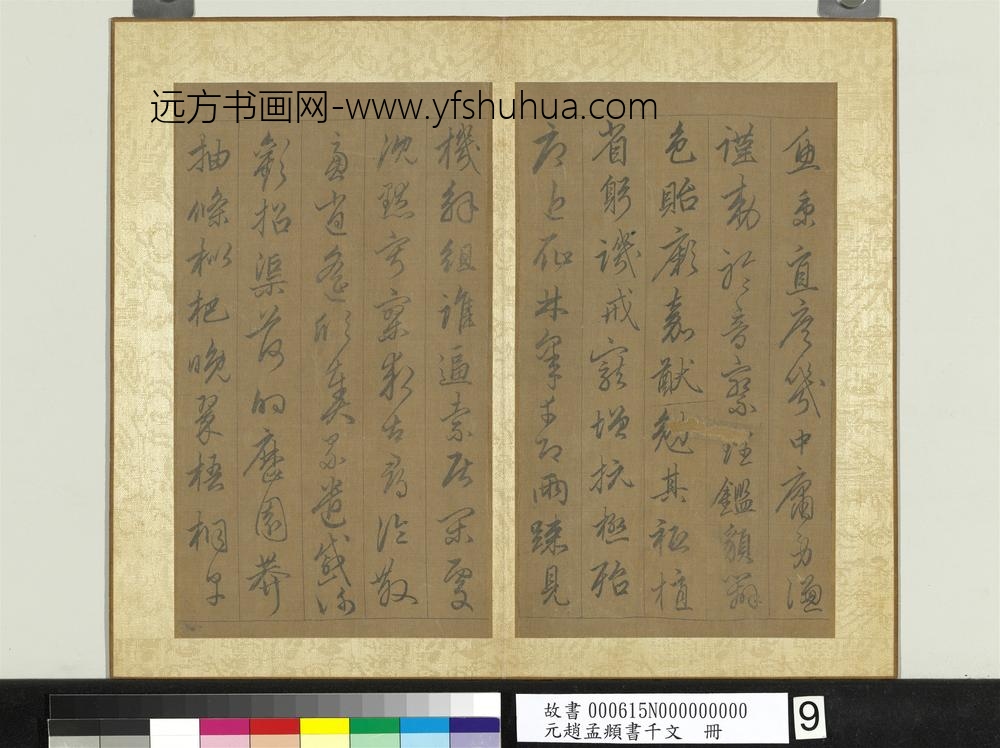 远方书画网-www.yfshuhua.com
魚秉直庶幾中庸勞謙
謹勅聆音察理鑑貌辯
色貽厥嘉猷勉其祗植
省躬譏戒寵增抗極殆
辱近恥林皋幸即兩疏見
機解組誰逼索居閑處
沉默寂寥求古尋論散
慮逍遙欣奏累遣慼謝
歡招渠荷的歷園莽
抽條枇杷晚翠梧桐早
故書 000615N000000000
元趙孟頫書千文 冊
9